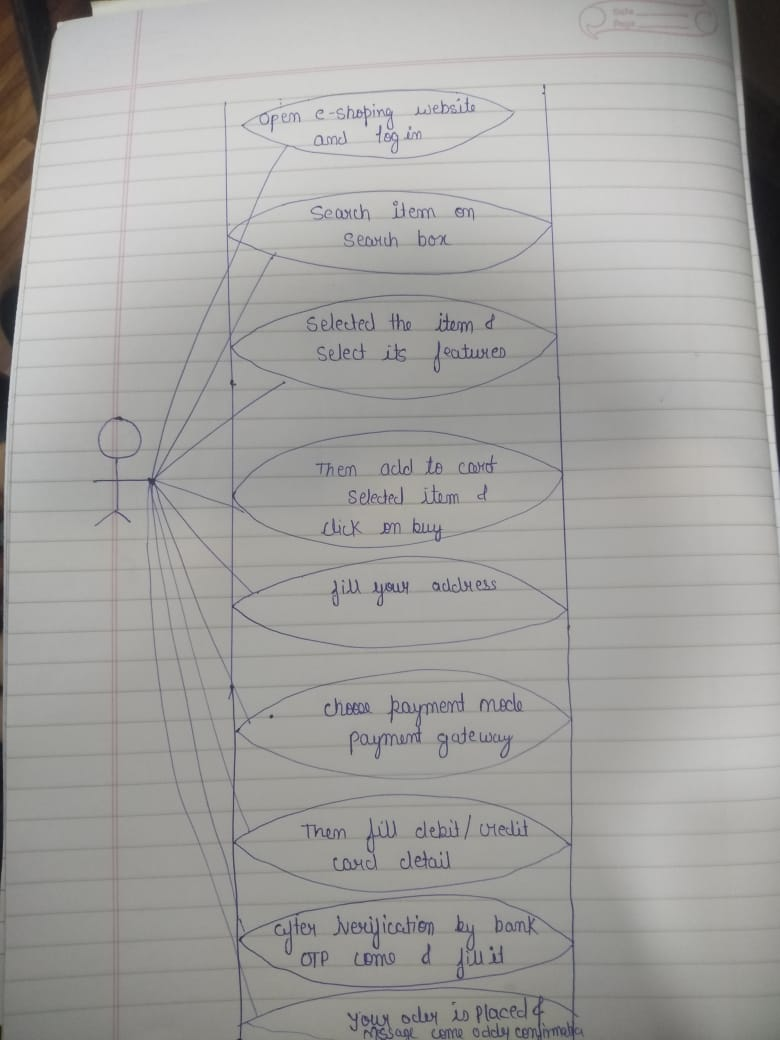 Date
Page
Open e-shoping website
and log in
Search item on
Search box
Selected the item &
select its features
Then add to cart
selected item &
click on buy
fill your address
choose payment mode
payment gateway
Then fill debit/credit
card detail
after verification by bank
OTP come & fill it
Your oder is placed &
message come